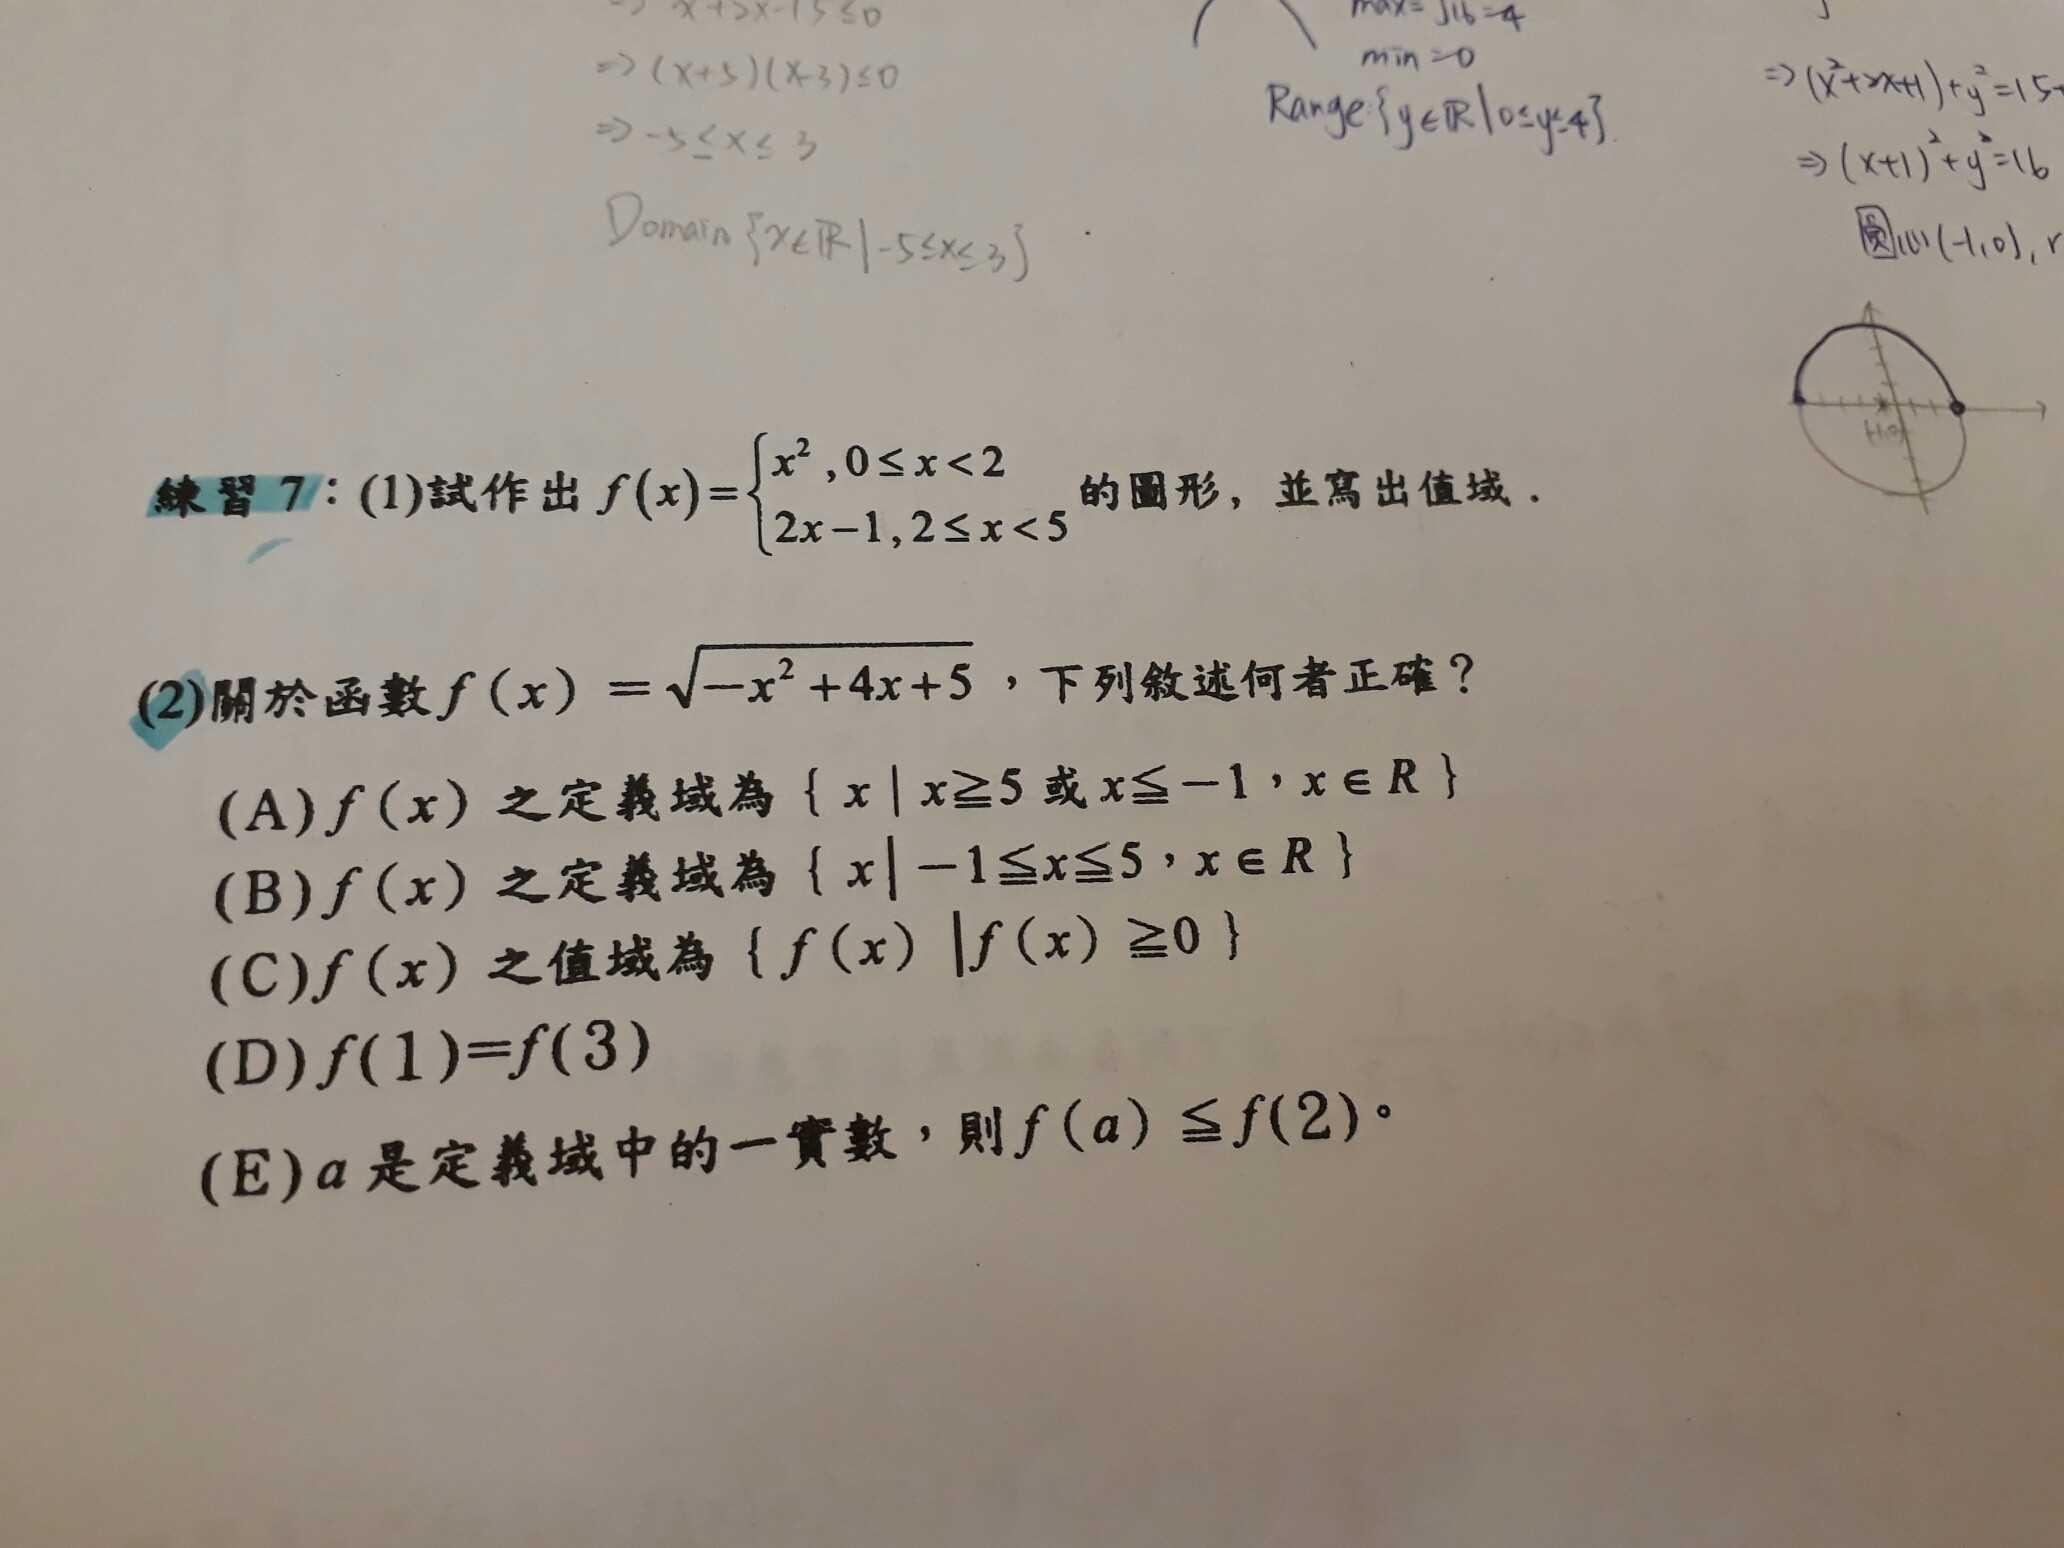 ⇒ x²+2x-15≤0
⇒ (x+5)(x-3)≤0
⇒ -5≤x≤3
Domain {x∈ℝ | -5≤x≤3}
max=√16=4
min=0
Range:{y∈ℝ | 0≤y≤4}
⇒ (x²+2x+1)+y²=15+
⇒ (x+1)²+y²=16
圓心(-1,0), r
(-1,0)
練習 7：(1)試作出 f(x)={x² ,0≤x<2
2x−1,2≤x<5 的圖形，並寫出值域．
(2)關於函數 f（x）＝√−x²+4x+5，下列敘述何者正確？
(A) f（x）之定義域為｛x｜x≧5 或 x≦−1，x∈R｝
(B) f（x）之定義域為｛x｜−1≦x≦5，x∈R｝
(C) f（x）之值域為｛f（x）｜f（x）≧0｝
(D) f(1)=f(3)
(E) a 是定義域中的一實數，則 f（a）≦f(2)。